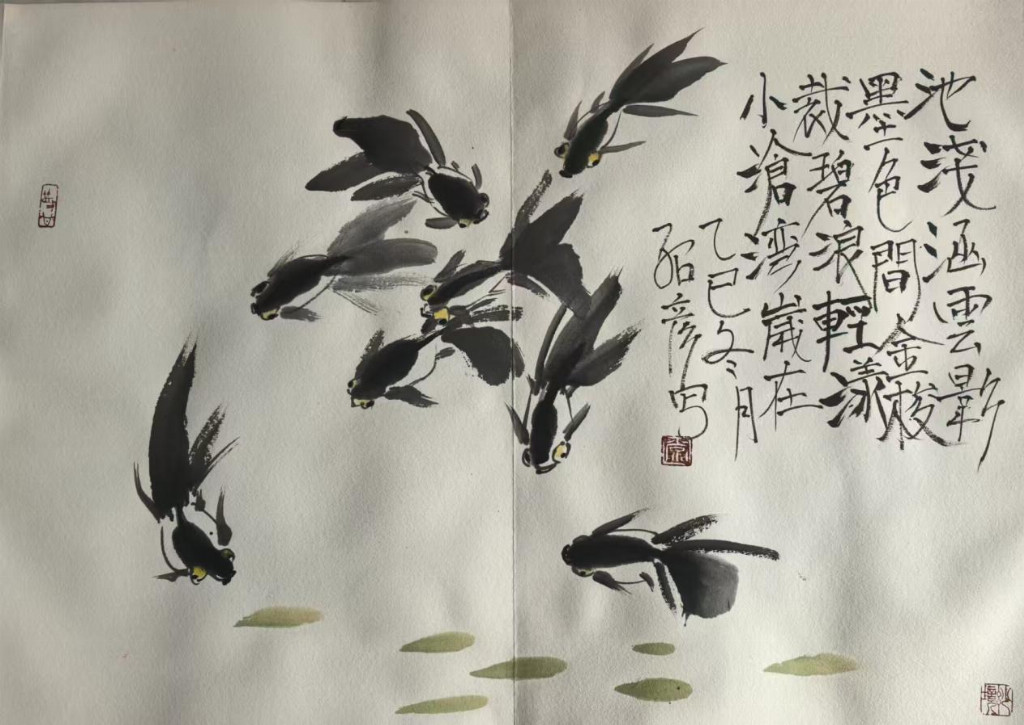 池淺涵雲影
墨色間金梭
裁碧浪輕漾
小滄湾歲在
乙巳冬月
彦写